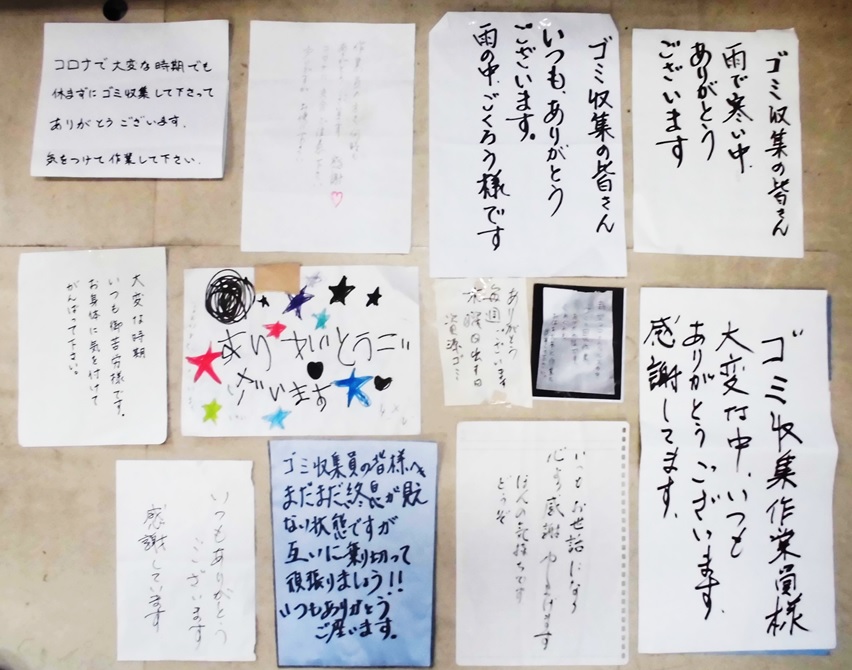 コロナで大変な時期でも
休まずにゴミ収集して下さって
ありがとうございます.
気をつけて作業して下さい.
感謝
ゴミ収集の皆さん
いつも、ありがとう
ございます。
雨の中、ごくろう様です
ゴミ収集の皆さん
雨で寒い中、
ありがとう
ございます
大変な時期
いつも御苦労様です。
お身体に気を付けて
がんばって下さい。
ありがとうご
ざいます
ありがとう
ございます
毎週
水曜日出す日
資源ゴミ
ゴミ収集作業員様
大変な中、いつも
ありがとうございます.
感謝してます.
いつもありがとう
ございます
感謝しています
ゴミ収集員の皆様へ
まだまだ終息が見え
ない状態ですが
互いに乗り切って
頑張りましょう!!
いつもありがとう
ご座います。
いつもお世話になり
心より感謝申し上げます
ほんの気持ちです
どうぞ